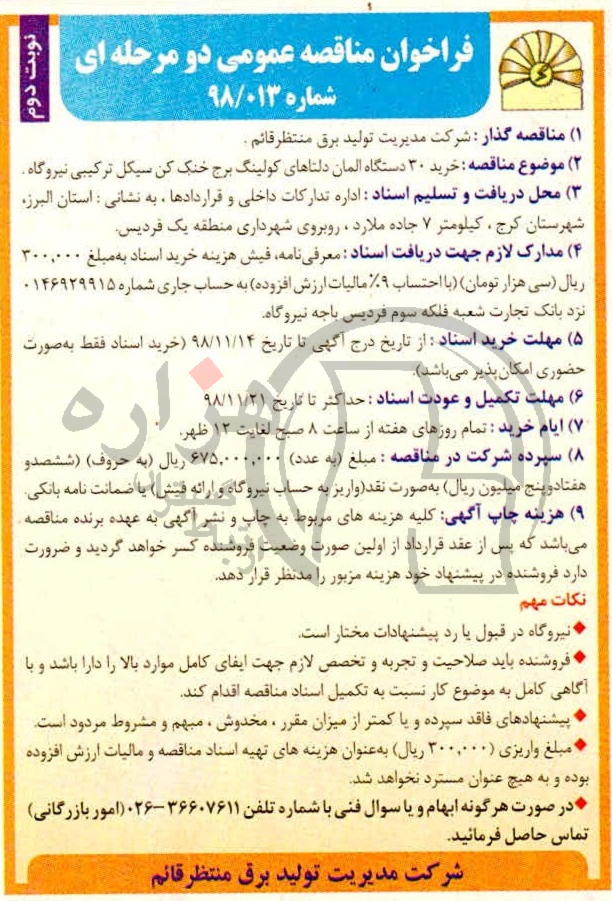 نوبت دوم
فراخوان مناقصه عمومی دو مرحله ای
شماره ۹۸/۰۱۳
۱) مناقصه گذار : شرکت مدیریت تولید برق منتظرقائم .
۲) موضوع مناقصه : خرید ۳۰ دستگاه المان دلتاهای کولینگ برج خنک کن سیکل ترکیبی نیروگاه .
۳) محل دریافت و تسلیم اسناد : اداره تدارکات داخلی و قراردادها ، به نشانی : استان البرز،
شهرستان کرج ، کیلومتر ۷ جاده ملارد ، روبروی شهرداری منطقه یک فردیس.
۴) مدارک لازم جهت دریافت اسناد : معرفی‌نامه، فیش هزینه خرید اسناد به‌مبلغ ۳۰۰,۰۰۰
ریال (سی هزار تومان) (با احتساب ۹٪ مالیات ارزش افزوده) به حساب جاری شماره ۰۱۴۶۹۲۹۹۱۵
نزد بانک تجارت شعبه فلکه سوم فردیس باجه نیروگاه.
۵) مهلت خرید اسناد : از تاریخ درج آگهی تا تاریخ ۹۸/۱۱/۱۴ (خرید اسناد فقط به‌صورت
حضوری امکان‌پذیر می‌باشد).
۶) مهلت تکمیل و عودت اسناد : حداکثر تا تاریخ ۹۸/۱۱/۲۱
۷) ایام خرید : تمام روزهای هفته از ساعت ۸ صبح لغایت ۱۲ ظهر.
۸) سپرده شرکت در مناقصه : مبلغ (به عدد) ۶۷۵,۰۰۰,۰۰۰ ریال (به حروف) (ششصدو
هفتادوپنج میلیون ریال) به‌صورت نقد(واریز به حساب نیروگاه و ارائه فیش) یا ضمانت نامه بانکی.
۹) هزینه چاپ آگهی: کلیه هزینه های مربوط به چاپ و نشر آگهی به عهده برنده مناقصه
می‌باشد که پس از عقد قرارداد از اولین صورت وضعیت فروشنده کسر خواهد گردید و ضرورت
دارد فروشنده در پیشنهاد خود هزینه مزبور را مدنظر قرار دهد.
نکات مهم
◆نیروگاه در قبول یا رد پیشنهادات مختار است.
◆فروشنده باید صلاحیت و تجربه و تخصص لازم جهت ایفای کامل موارد بالا را دارا باشد و با
آگاهی کامل به موضوع کار نسبت به تکمیل اسناد مناقصه اقدام کند.
◆پیشنهادهای فاقد سپرده و یا کمتر از میزان مقرر ، مخدوش ، مبهم و مشروط مردود است.
◆مبلغ واریزی (۳۰۰,۰۰۰ ریال) به‌عنوان هزینه های تهیه اسناد مناقصه و مالیات ارزش افزوده
بوده و به هیچ عنوان مسترد نخواهد شد.
◆در صورت هرگونه ابهام و یا سوال فنی با شماره تلفن ۳۶۶۰۷۶۱۱–۰۲۶(امور بازرگانی)
تماس حاصل فرمائید.
شرکت مدیریت تولید برق منتظرقائم
هزاره